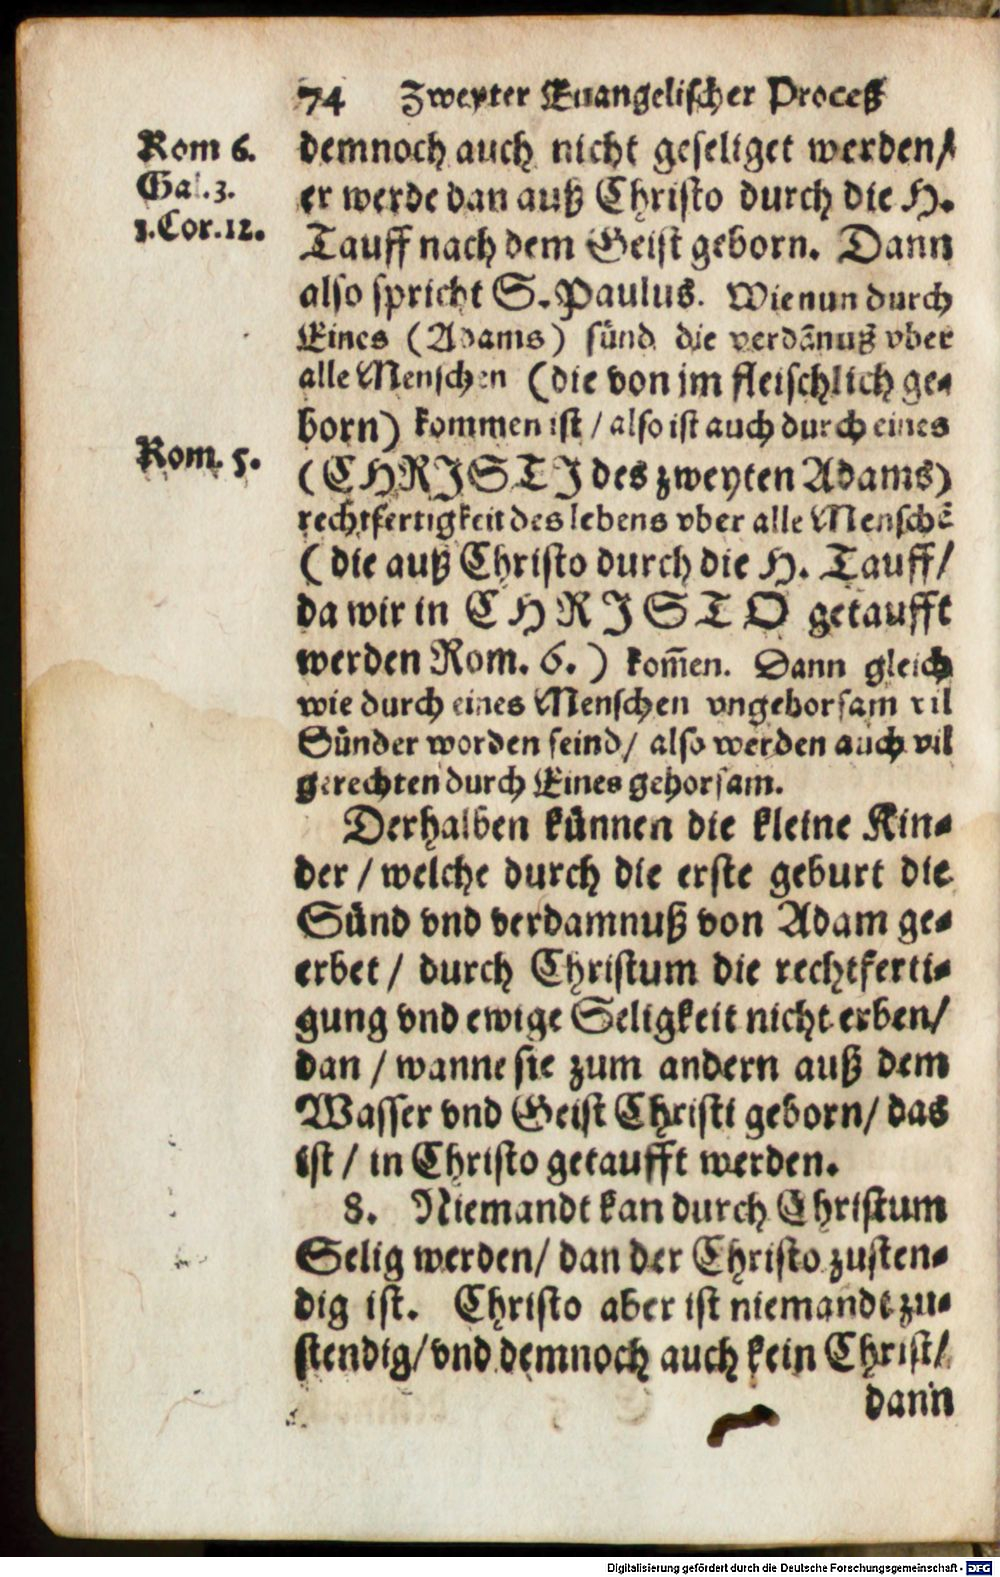 74 Zweyter Euangelischer Proceß
Rom 6.
Gal. 3.
1. Cor. 12.
demnoch auch nicht geseliget werden/
er werde dan auß Christo durch die H.
Tauff nach dem Geist geborn. Dann
also spricht S. Paulus. Wie nun durch
Eines (Adams) sünd die verdãnuß vber
alle Menschen (die von im fleischlich ge-
born) kommen ist / also ist auch durch eines
Rom. 5.
(CHRISTI des zweyten Adams)
rechtfertigkeit des lebens vber alle Menschẽ
(die auß Christo durch die H. Tauff/
da wir in CHRISTO getaufft
werden Rom. 6.) kom̃en. Dann gleich
wie durch eines Menschen vngehorsam vil
Sünder worden seind/ also werden auch vil
gerechten durch Eines gehorsam.
Derhalben künnen die kleine Kin-
der / welche durch die erste geburt die
Sünd vnd verdamnuß von Adam ge-
erbet / durch Christum die rechtferti-
gung vnd ewige Seligkeit nicht erben/
dan / wanne sie zum andern auß dem
Wasser vnd Geist Christi geborn/ das
ist / in Christo getaufft werden.
8. Niemandt kan durch Christum
Selig werden/ dan der Christo zusten-
dig ist. Christo aber ist niemandt zu-
stendig/ vnd demnoch auch kein Christ/
dann
Digitalisierung gefördert durch die Deutsche Forschungsgemeinschaft - DFG